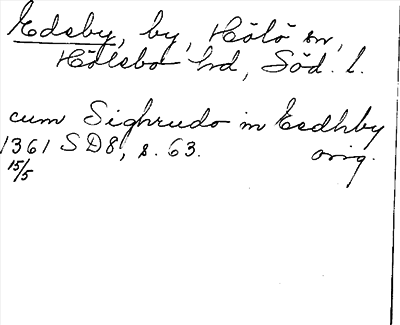 Edeby, by, Hölö sn,
Hölebo hd, Söd. l.
cum Sighrudo in Eedhby
1361 SD8, s. 63. orig.
15/5